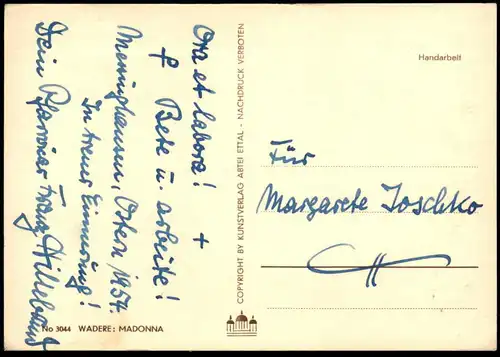 Ora et labora!
+
Bete u. arbeite!
Messinghausen, Ostern 1954.
In treuer Erinnerung!
Dein Pfarrvikar Franz Hillebrand
No 3044 WADERE: MADONNA
COPYRIGHT BY KUNSTVERLAG ABTEI ETTAL - NACHDRUCK VERBOTEN
Handarbeit
Für
Margarete Joschko